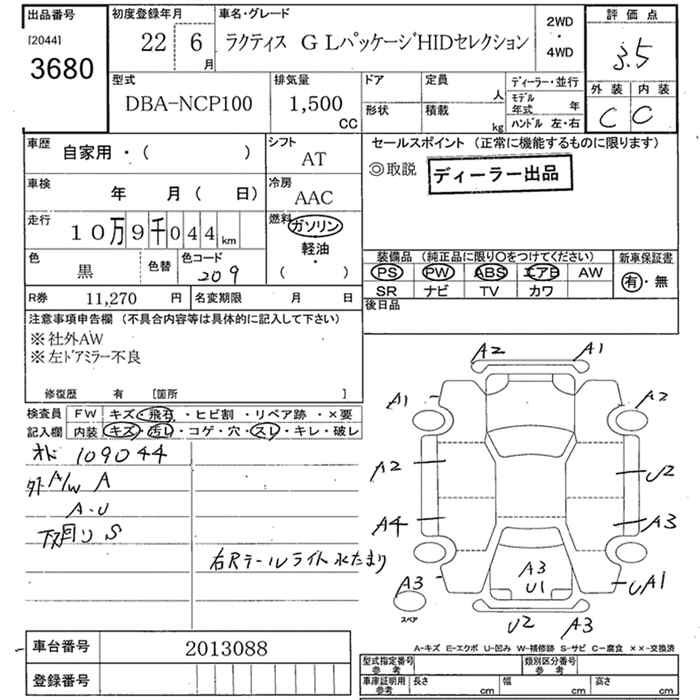 出品番号
[2044]
3680
初度登録年月
22 6月
車名・グレード
ラクティス GLパッケージHIDセレクション
2WD
・
4WD
評価点
3.5
外装 内装
C C
型式
DBA-NCP100
排気量
1,500
CC
ドア
形状
定員
人
積載
kg
ディーラー・並行
モデル年式 年
ハンドル 左・右
車歴
自家用・( )
シフト
AT
車検
年 月( 日)
冷房
AAC
走行
10万9千044km
燃料
ガソリン
軽油・
( )
色
黒
色替
色コード
209
R券 11,270 円
名変期限 月 日
セールスポイント (正常に機能するものに限ります)
◎取説
ディーラー出品
装備品 (純正品に限り○をつけてください)
PS PW ABS エアB AW
SR ナビ TV カワ
新車保証書
有・無
後日品
注意事項申告欄 (不具合内容等は具体的に記入して下さい)
※社外AW
※左ドアミラー不良
修復歴 有 [箇所 ]
検査員
記入欄
FW キズ・飛石・ヒビ割・リペア跡・×要
内装 キズ・汚レ・コゲ・穴・スレ・キレ・破レ
オド 109044
外A/W A
A-U
下回り S
右Rテールライト水たまり
A2 A1
A1 A2
A2 U2
A4 A3
A3
U1
A3
スペア
UA1
U2 A3
A-キズ E-エクボ U-凹み W-補修跡 S-サビ C-腐食 ××-交換済
車台番号 2013088
登録番号
型式指定番号
参考
類別区分番号
参考
車庫証明用
参考
長さ cm
幅 cm
高さ cm